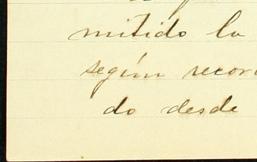 mitido la
según recor
do desde